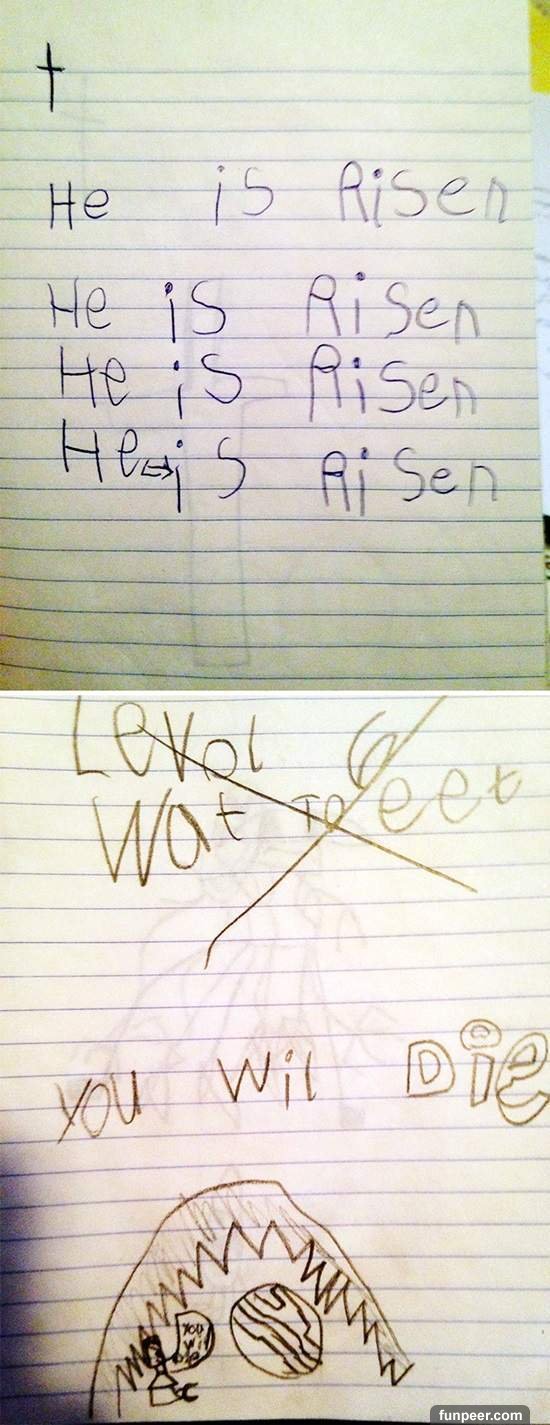 He is Risen
He is Risen
He is Risen
He is Risen
Level 6
Wat To eet
YOU Wil DiE
YOU
Wil
Die
funpeer.com